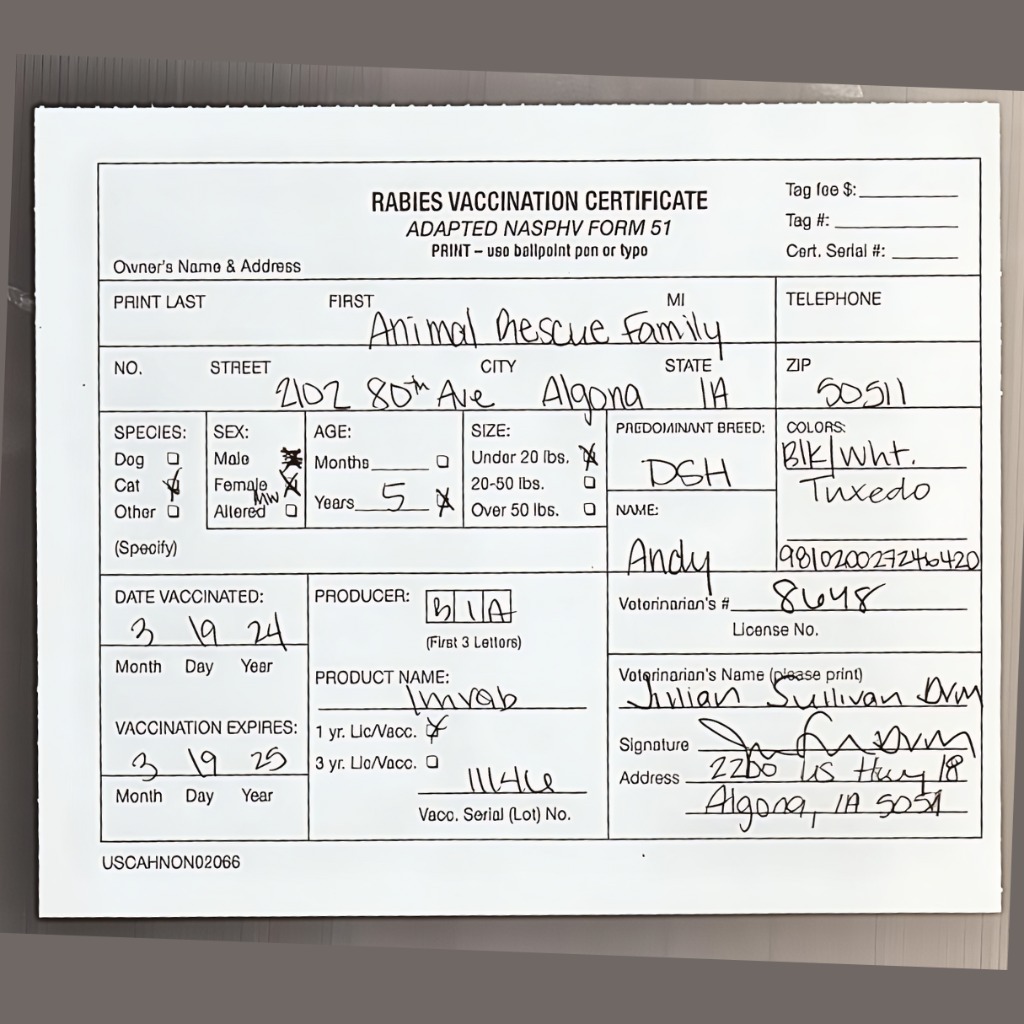 RABIES VACCINATION CERTIFICATE
ADAPTED NASPHV FORM 51
PRINT – use ballpoint pen or type
Tag fee $:
Tag #:
Cert. Serial #:
Owner's Name & Address
PRINT LAST FIRST MI TELEPHONE
Animal Rescue Family
NO. STREET CITY STATE ZIP
2102 80th Ave Algona IA 50511
SPECIES:
Dog
Cat
Other
(Specify)
SEX:
Male
Female
Altered
AGE:
Months
Years 5
SIZE:
Under 20 lbs.
20-50 lbs.
Over 50 lbs.
PREDOMINANT BREED:
DSH
COLORS:
Blk/Wht.
Tuxedo
NAME:
Andy
981020027246420
DATE VACCINATED:
3 19 24
Month Day Year
VACCINATION EXPIRES:
3 19 25
Month Day Year
PRODUCER: BIA
(First 3 Letters)
PRODUCT NAME:
Imrab
1 yr. Lic/Vacc.
3 yr. Lic/Vacc.
Vacc. Serial (Lot) No.
Veterinarian's # 8648
License No.
Veterinarian's Name (please print)
Jillian Sullivan DVM
Signature DVM
Address 2200 US Hwy 18
Algona, IA
USCAHNON02066